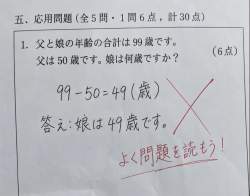 五、応用問題(全5問・1問6点，計30点)
1. 父と娘の年齢の合計は99歳です。
父は50歳です。娘は何歳ですか？
(6点)
99-50=49(歳)
答え:娘は49歳です。
よく問題を読もう!